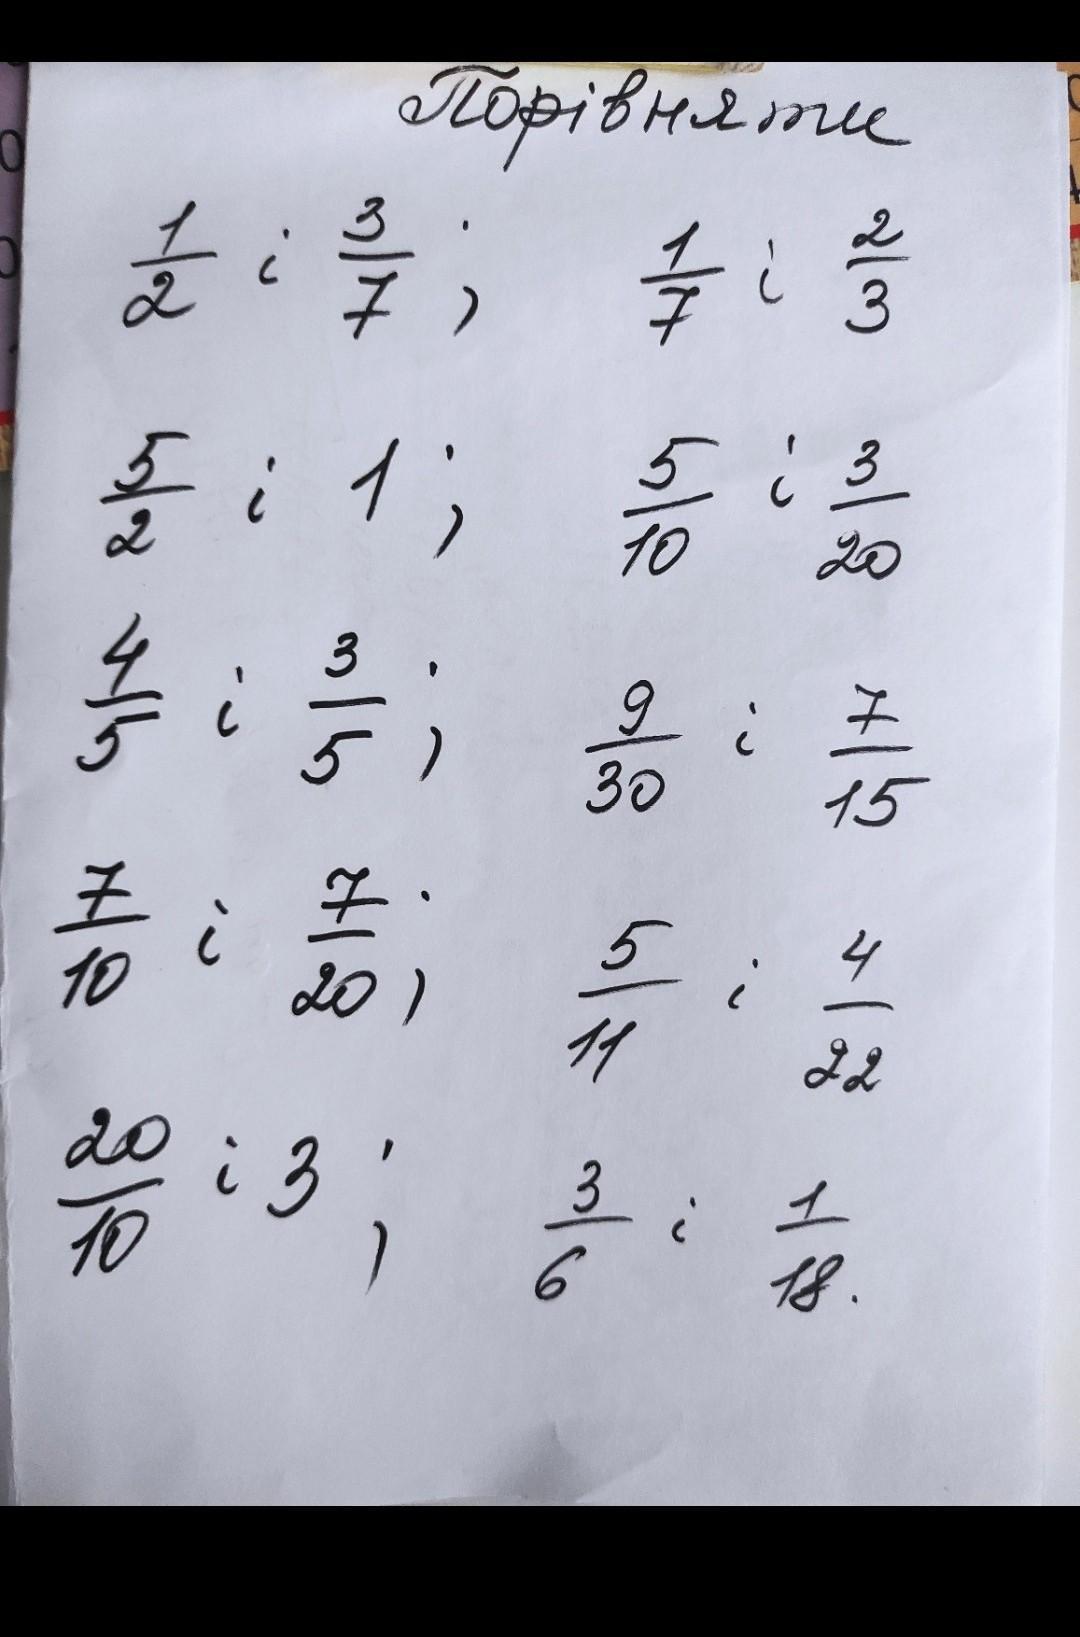 Порівняти
1/2 і 3/7; 1/7 і 2/3
5/2 і 1; 5/10 і 3/20
4/5 і 3/5; 9/30 і 7/15
7/10 і 7/20; 5/11 і 4/22
20/10 і 3; 3/6 і 1/18.